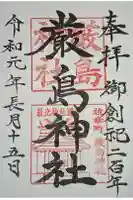 奉拝 御創祀二百年
厳島神社
令和元年長月十五日